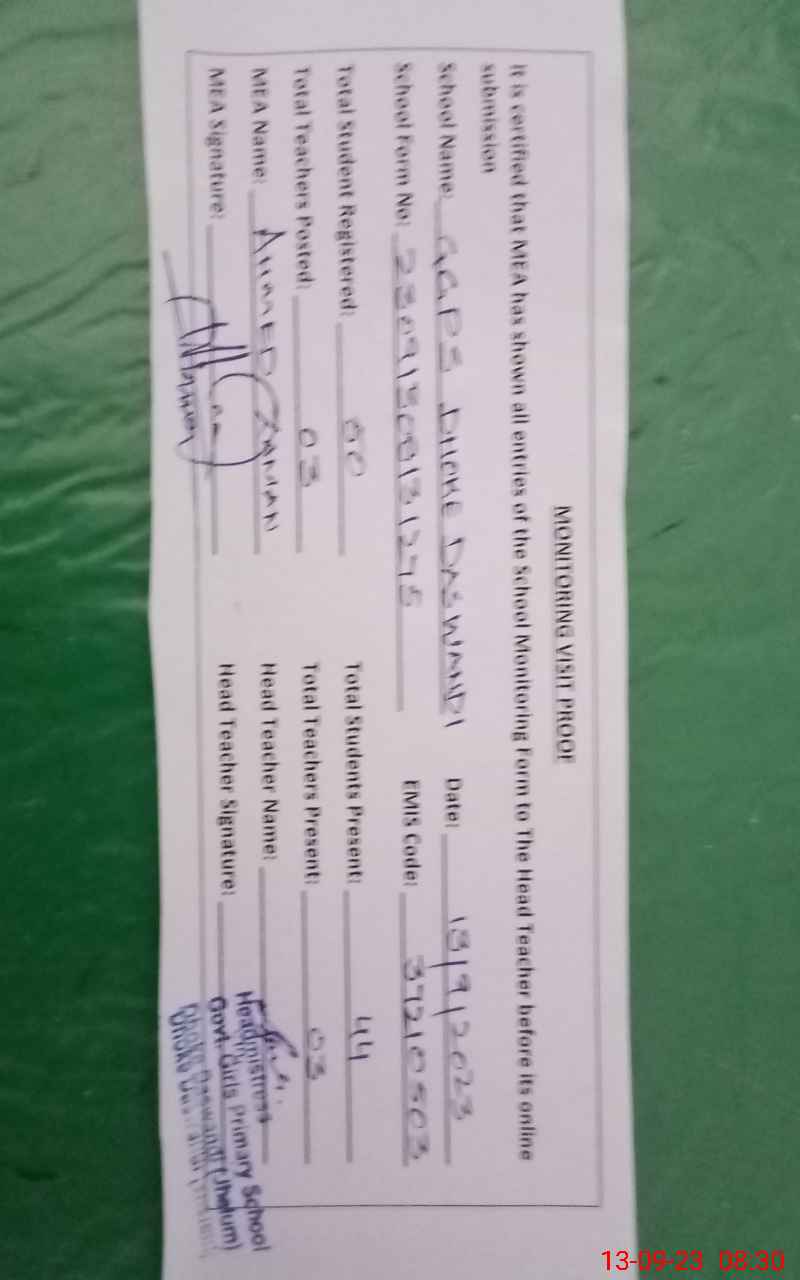 MONITORING VISIT PROOF
It is certified that MEA has shown all entries of the School Monitoring Form to The Head Teacher before its online
submission
School Name: GGPS DHOKE DASWANDI Date: 13/9/2023
School Form No: EMIS Code: 37210503
Total Student Registered: Total Students Present: 44
Total Teachers Posted: 03 Total Teachers Present: 03
MEA Name: AHMED ZAMAN Head Teacher Name:
MEA Signature: Head Teacher Signature:
Headmistress
Govt. Girls Primary School
Dhoke Daswandi (Jhelum)
13-09-23 08:30